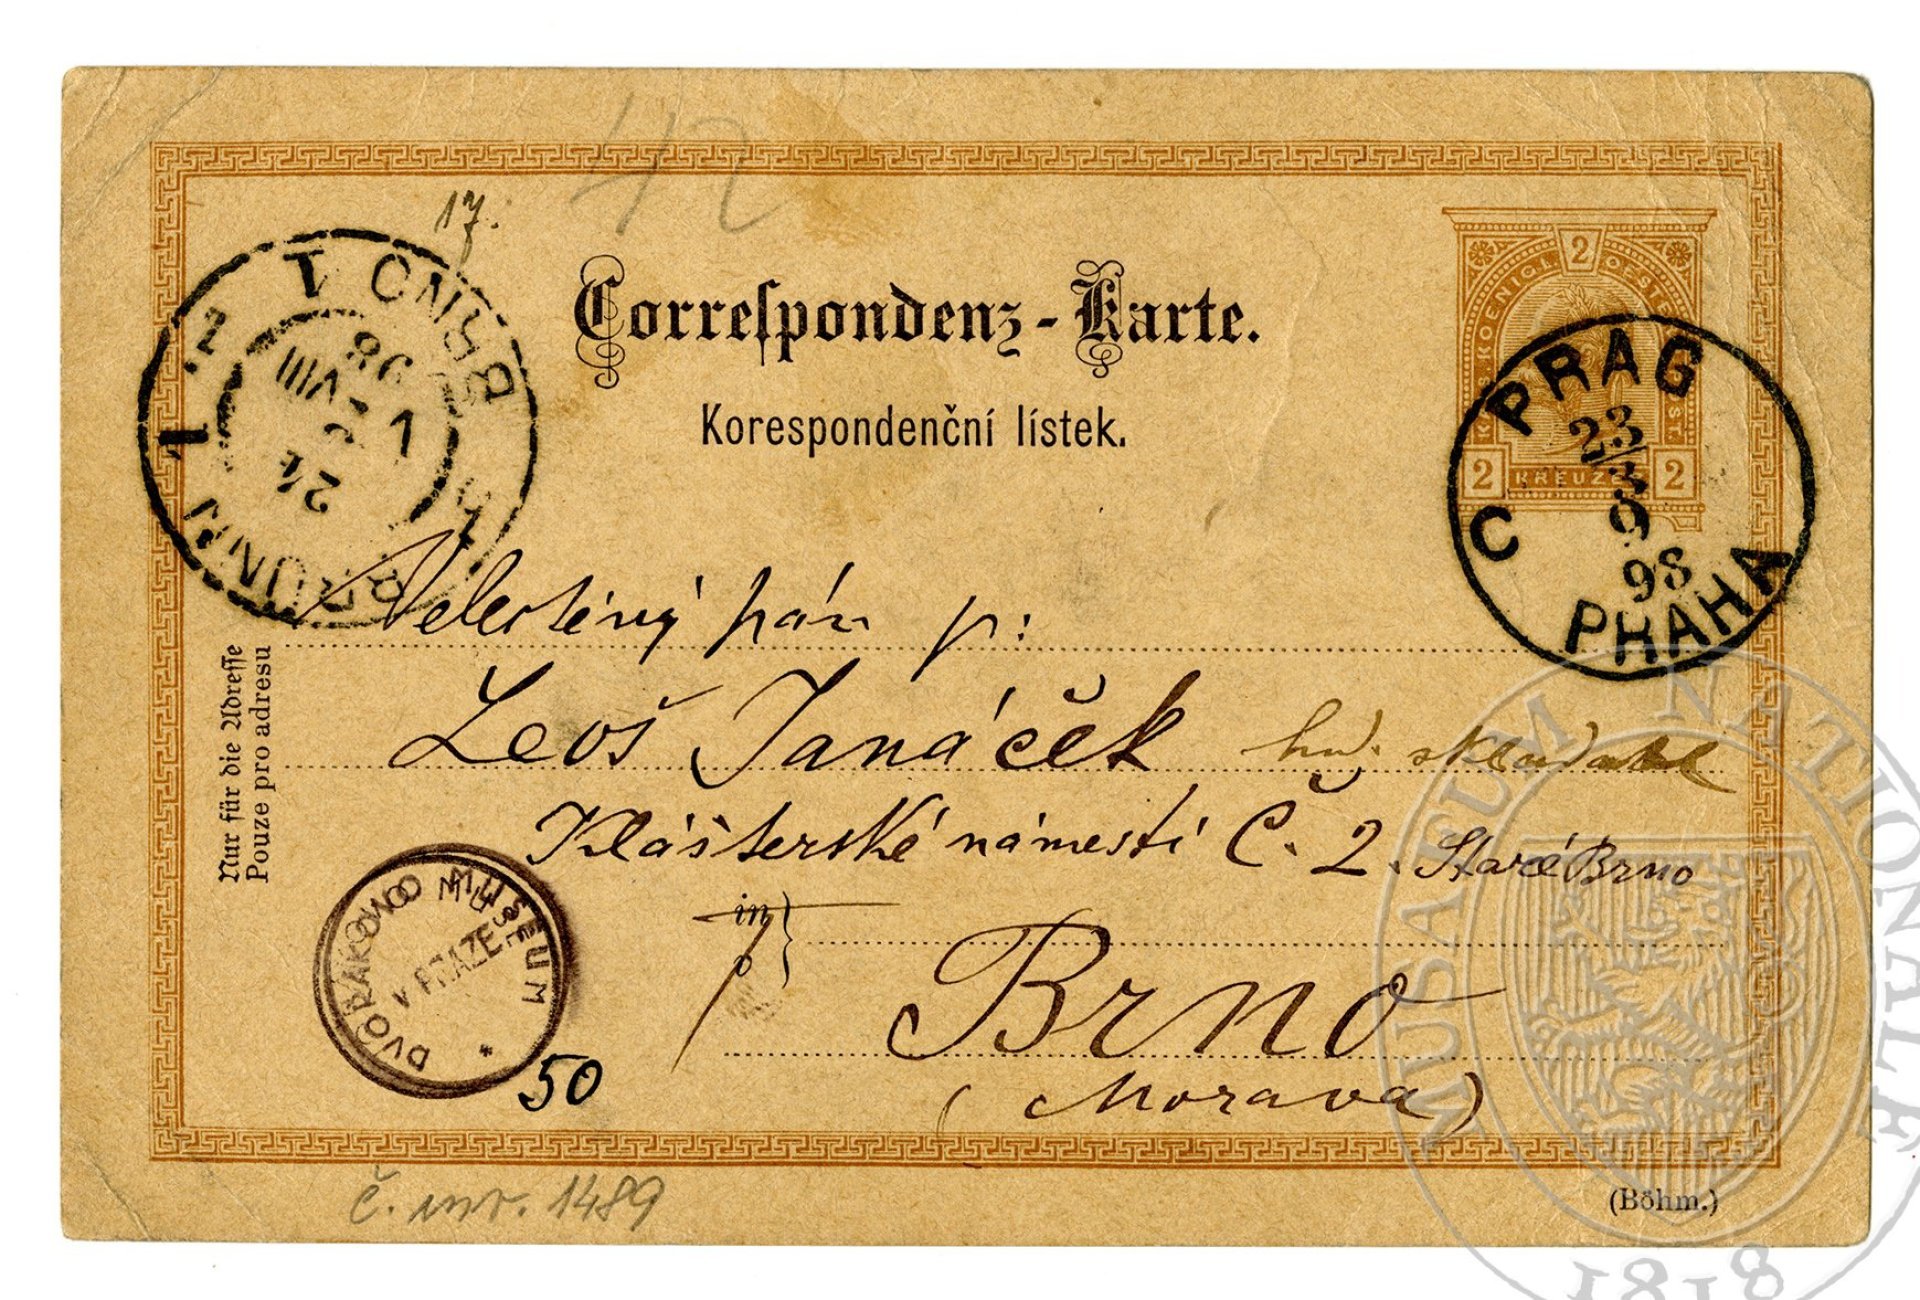 42
17.
Correspondenz-Karte.
Korespondenční lístek.
2
KOENIGL. OEST.
2 KREUZER 2
PRAG
23/3
9
98
C PHAHA
BRNO 1
BRÜNN
24
VIII
98
Veletěný pán p:
Leoš Janáček hud. skladatel
Klášterské náměstí Č. 2. Staré Brno
in
Brno
(Morava)
Nur für die Adresse
Pouze pro adresu
DVOŘÁKOVO MUSEUM
V PRAZE
50
č. inv. 1489
(Böhm.)
MUSAEUM NATIONALE
1818